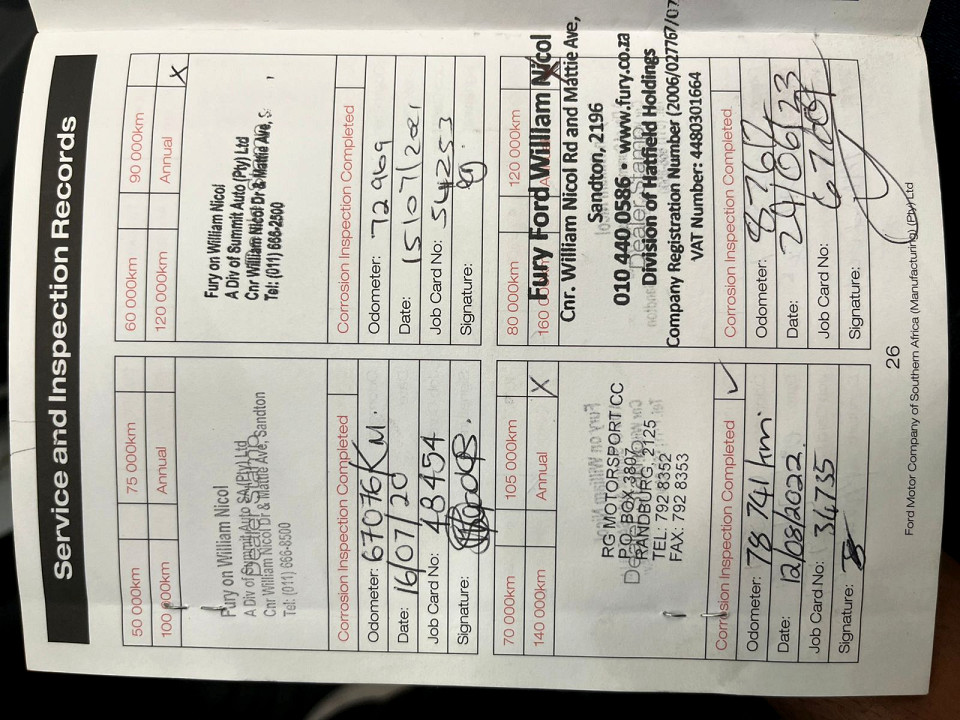 Service and Inspection Records
50 000km 75 000km
100 000km Annual
Fury on William Nicol
A Div of Summit Auto SA (Pty) Ltd
Cnr William Nicol Dr & Mattie Ave, Sandton
Tel: (011) 666-8500
Dealer Stamp
Corrosion Inspection Completed
Odometer: 67076 KM.
Date: 16/07/20
Job Card No: 48454
Signature:
60 000km 90 000km
120 000km Annual X
Fury on William Nicol
A Div of Summit Auto (Pty) Ltd
Cnr William Nicol Dr & Mattie Ave, S
Tel: (011) 666-2500
Corrosion Inspection Completed
Odometer: 72969
Date: 15/07/2021
Job Card No: 54253
Signature:
70 000km 105 000km
140 000km Annual X
RG MOTORSPORT CC
P.O. BOX 3807
RANDBURG, 2125
TEL: 792 8352
FAX: 792 8353
Corrosion Inspection Completed ✓
Odometer: 78 741 km.
Date: 12/08/2022.
Job Card No: 34735
Signature:
80 000km 120 000km
160 000km X
Fury Ford William Nicol
Cnr. William Nicol Rd and Mattie Ave,
Sandton, 2196
010 440 0586 • www.fury.co.za
Dealer Stamp
Division of Hatfield Holdings
Company Registration Number (2006/027767/07
VAT Number: 4480301664
Corrosion Inspection Completed
Odometer: 8767
Date: 24/06/23
Job Card No:
Signature:
26
Ford Motor Company of Southern Africa (Manufacturing) (Pty) Ltd